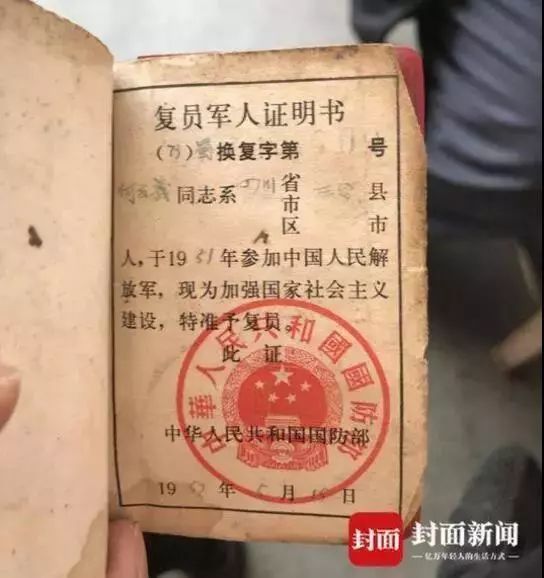 复员军人证明书
换复字第 号
同志系 四川 省市区 县市
人，于1951年参加中国人民解
放军，现为加强国家社会主义
建设，特准予复员。
此 证
中華人民共和國國防部
中华人民共和国国防部
19 年5月 日
封面 封面新闻
亿万年轻人的生活方式